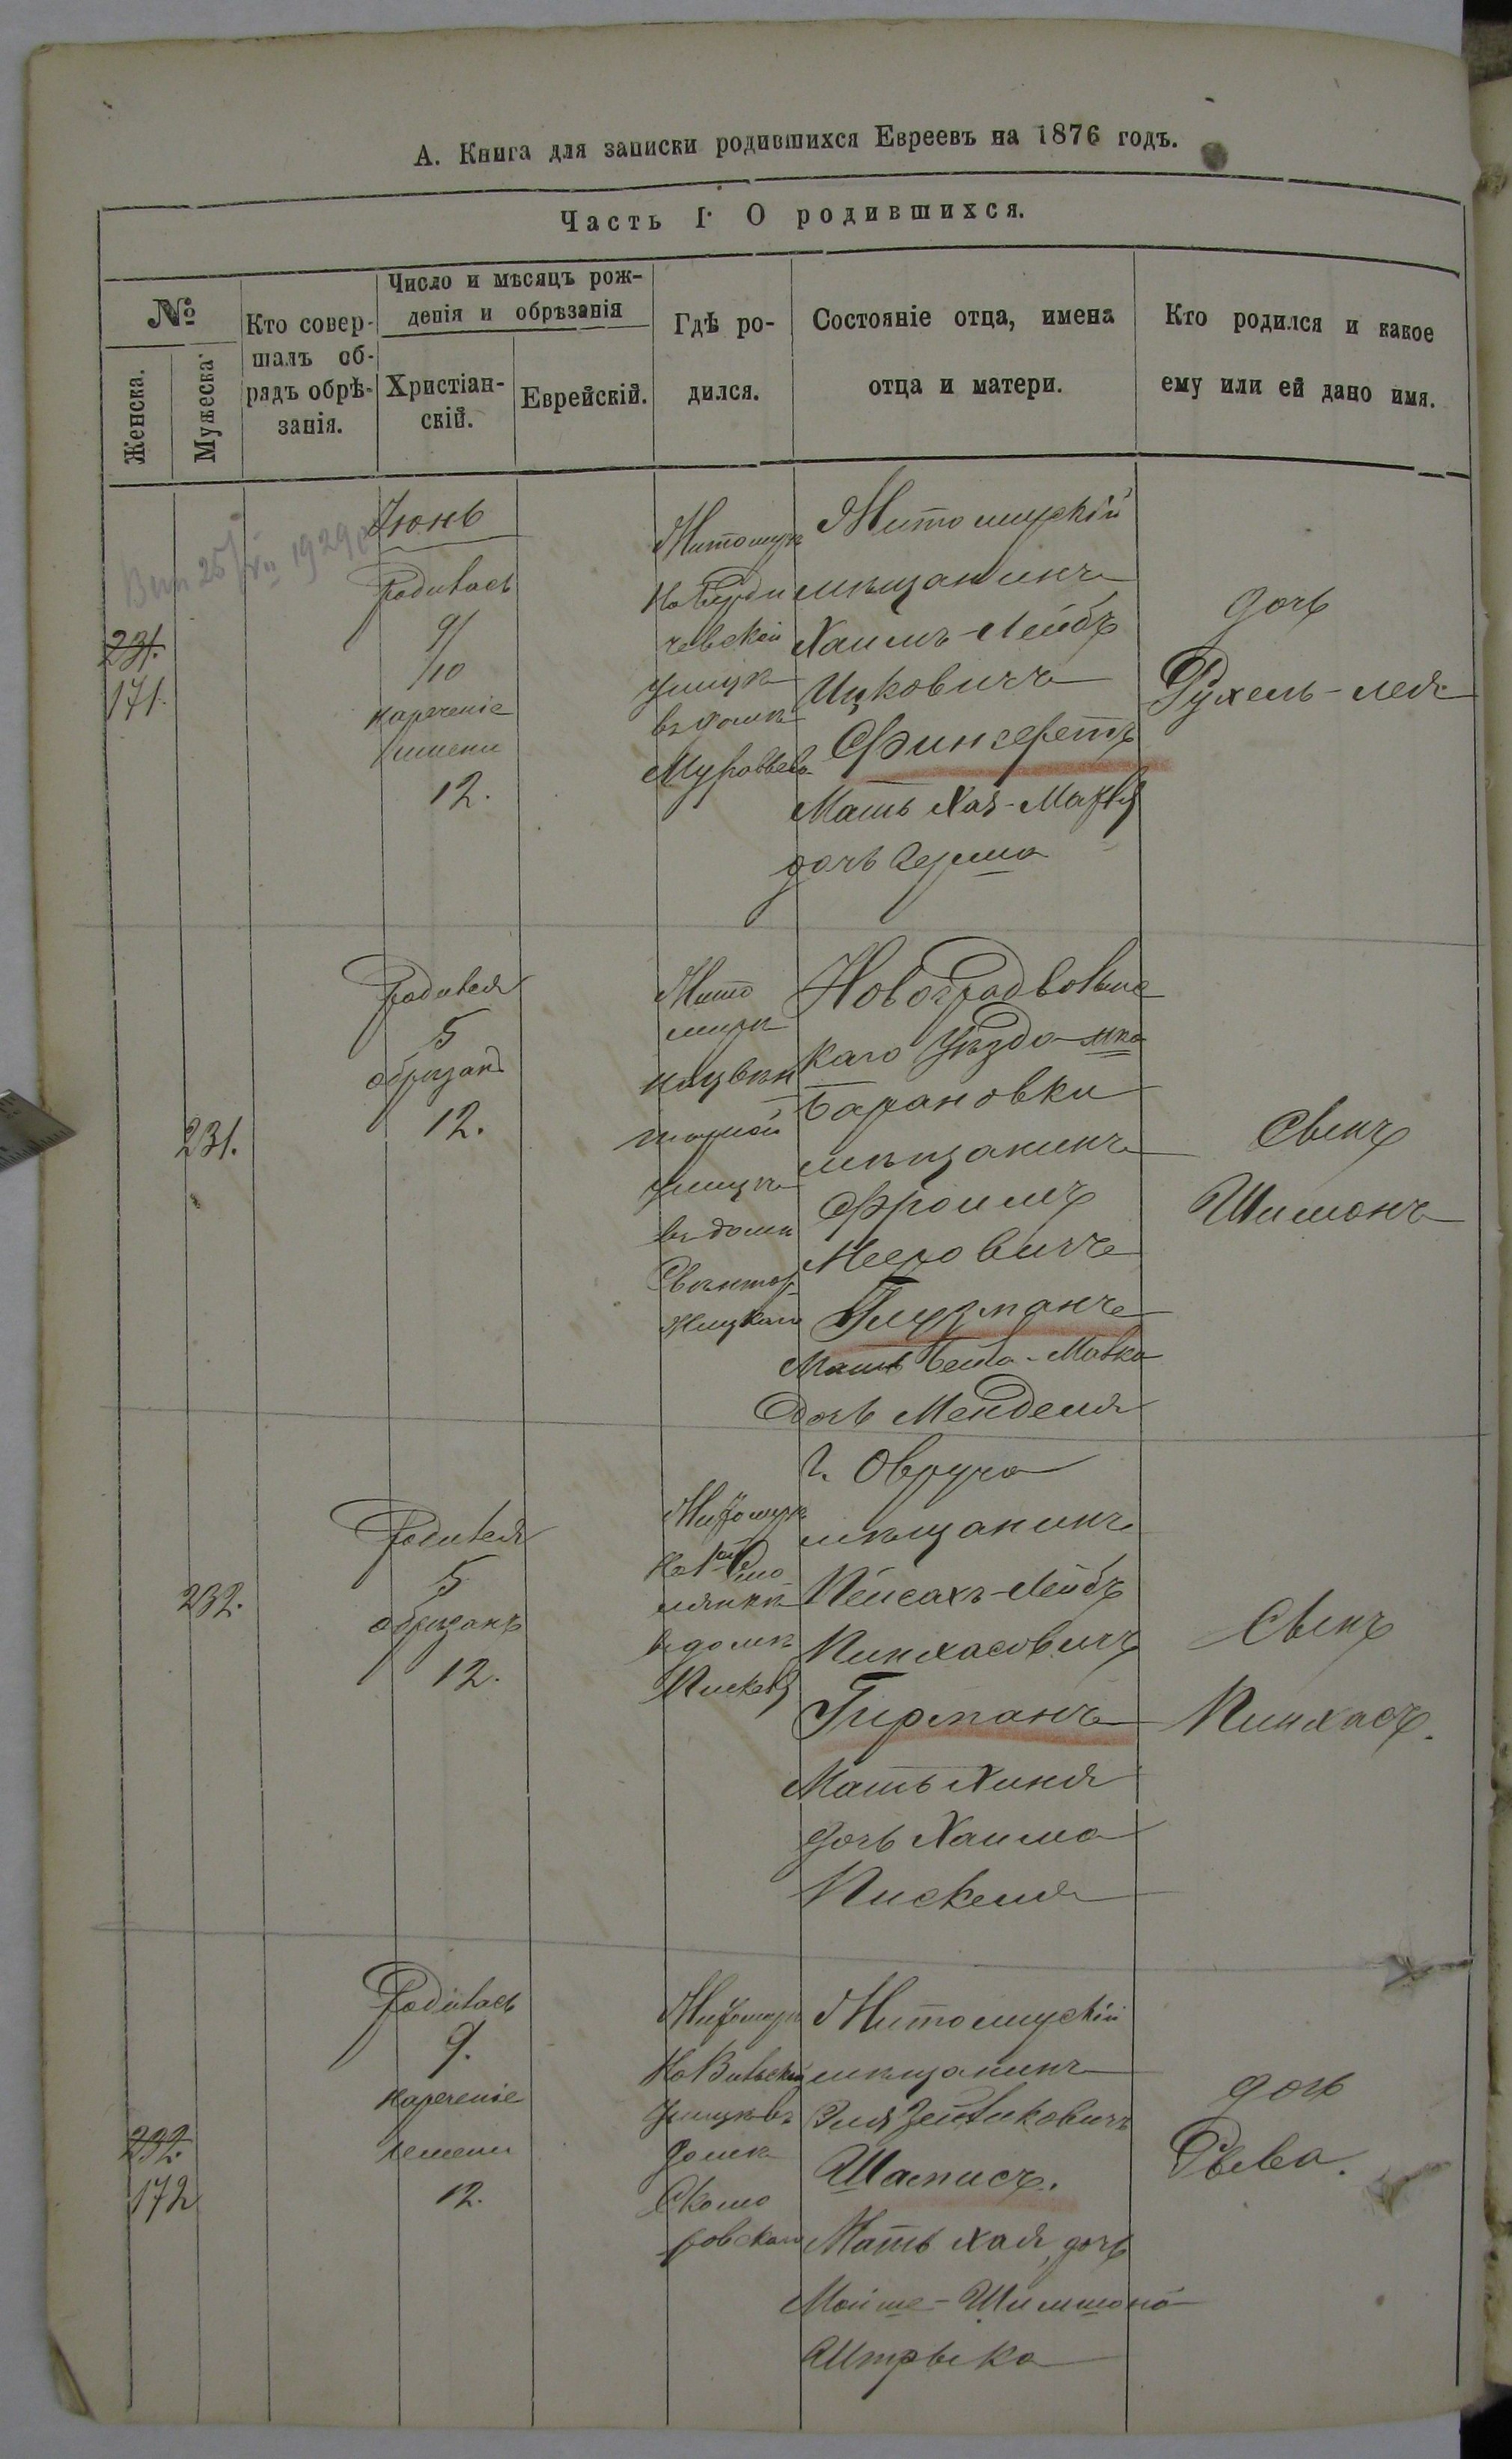 А. Книга для записки родившихся Евреевъ на 1876 годъ.
Часть I. О родившихся.
№
Женска.
Мужеска.
Кто совер-
шалъ об-
рядъ обрѣ-
занія.
Число и мѣсяцъ рож-
денія и обрѣзанія
Христіан-
скій.
Еврейскій.
Гдѣ ро-
дился.
Состояніе отца, имена
отца и матери.
Кто родился и какое
ему или ей дано имя.
231.
171.
Іюнь
Родилась
9/
/10
нареченіе
имени
12.
Житомірѣ
на Берди
чевской
улицѣ
въ домѣ
Муравьева
Житомирскій
мѣщанинъ
Хаимъ-Лейбъ
Ицковичъ
Фингеретъ
Мать Хая-Марія
дочь Герша
дочь
Рухель-Лея
231.
Родился
5
обрезанъ
12.
Жито
мирѣ
улицѣ
въ домѣ
Новоградволынс
каго уѣзда мка
Барановки
мѣщанинъ
Фроимъ
Мееровичъ
Глузманъ
Мать Бейла-Малка
Дочь Менделя
Сынъ
Шимонъ
232.
Родился
5
обрезанъ
12.
Житомірѣ
въ домѣ
Пискеля
г. Овруча
мѣщанинъ
Пейсахъ-Лейбъ
Пинхасовичъ
Гирманъ
Мать Хиня
дочь Хаима
Пискеля
Сынъ
Пинхасъ.
232.
172
Родилась
9.
нареченіе
имени
12.
Житомірѣ
на Вильской
улицѣ въ
домѣ
Скомо
ровскаго
Житомирскій
мѣщанинъ
Эля Зейликовичъ
Шаписъ.
Мать Хая, дочь
Мойше-Шимшона
Штрыка
дочь
Рывва.